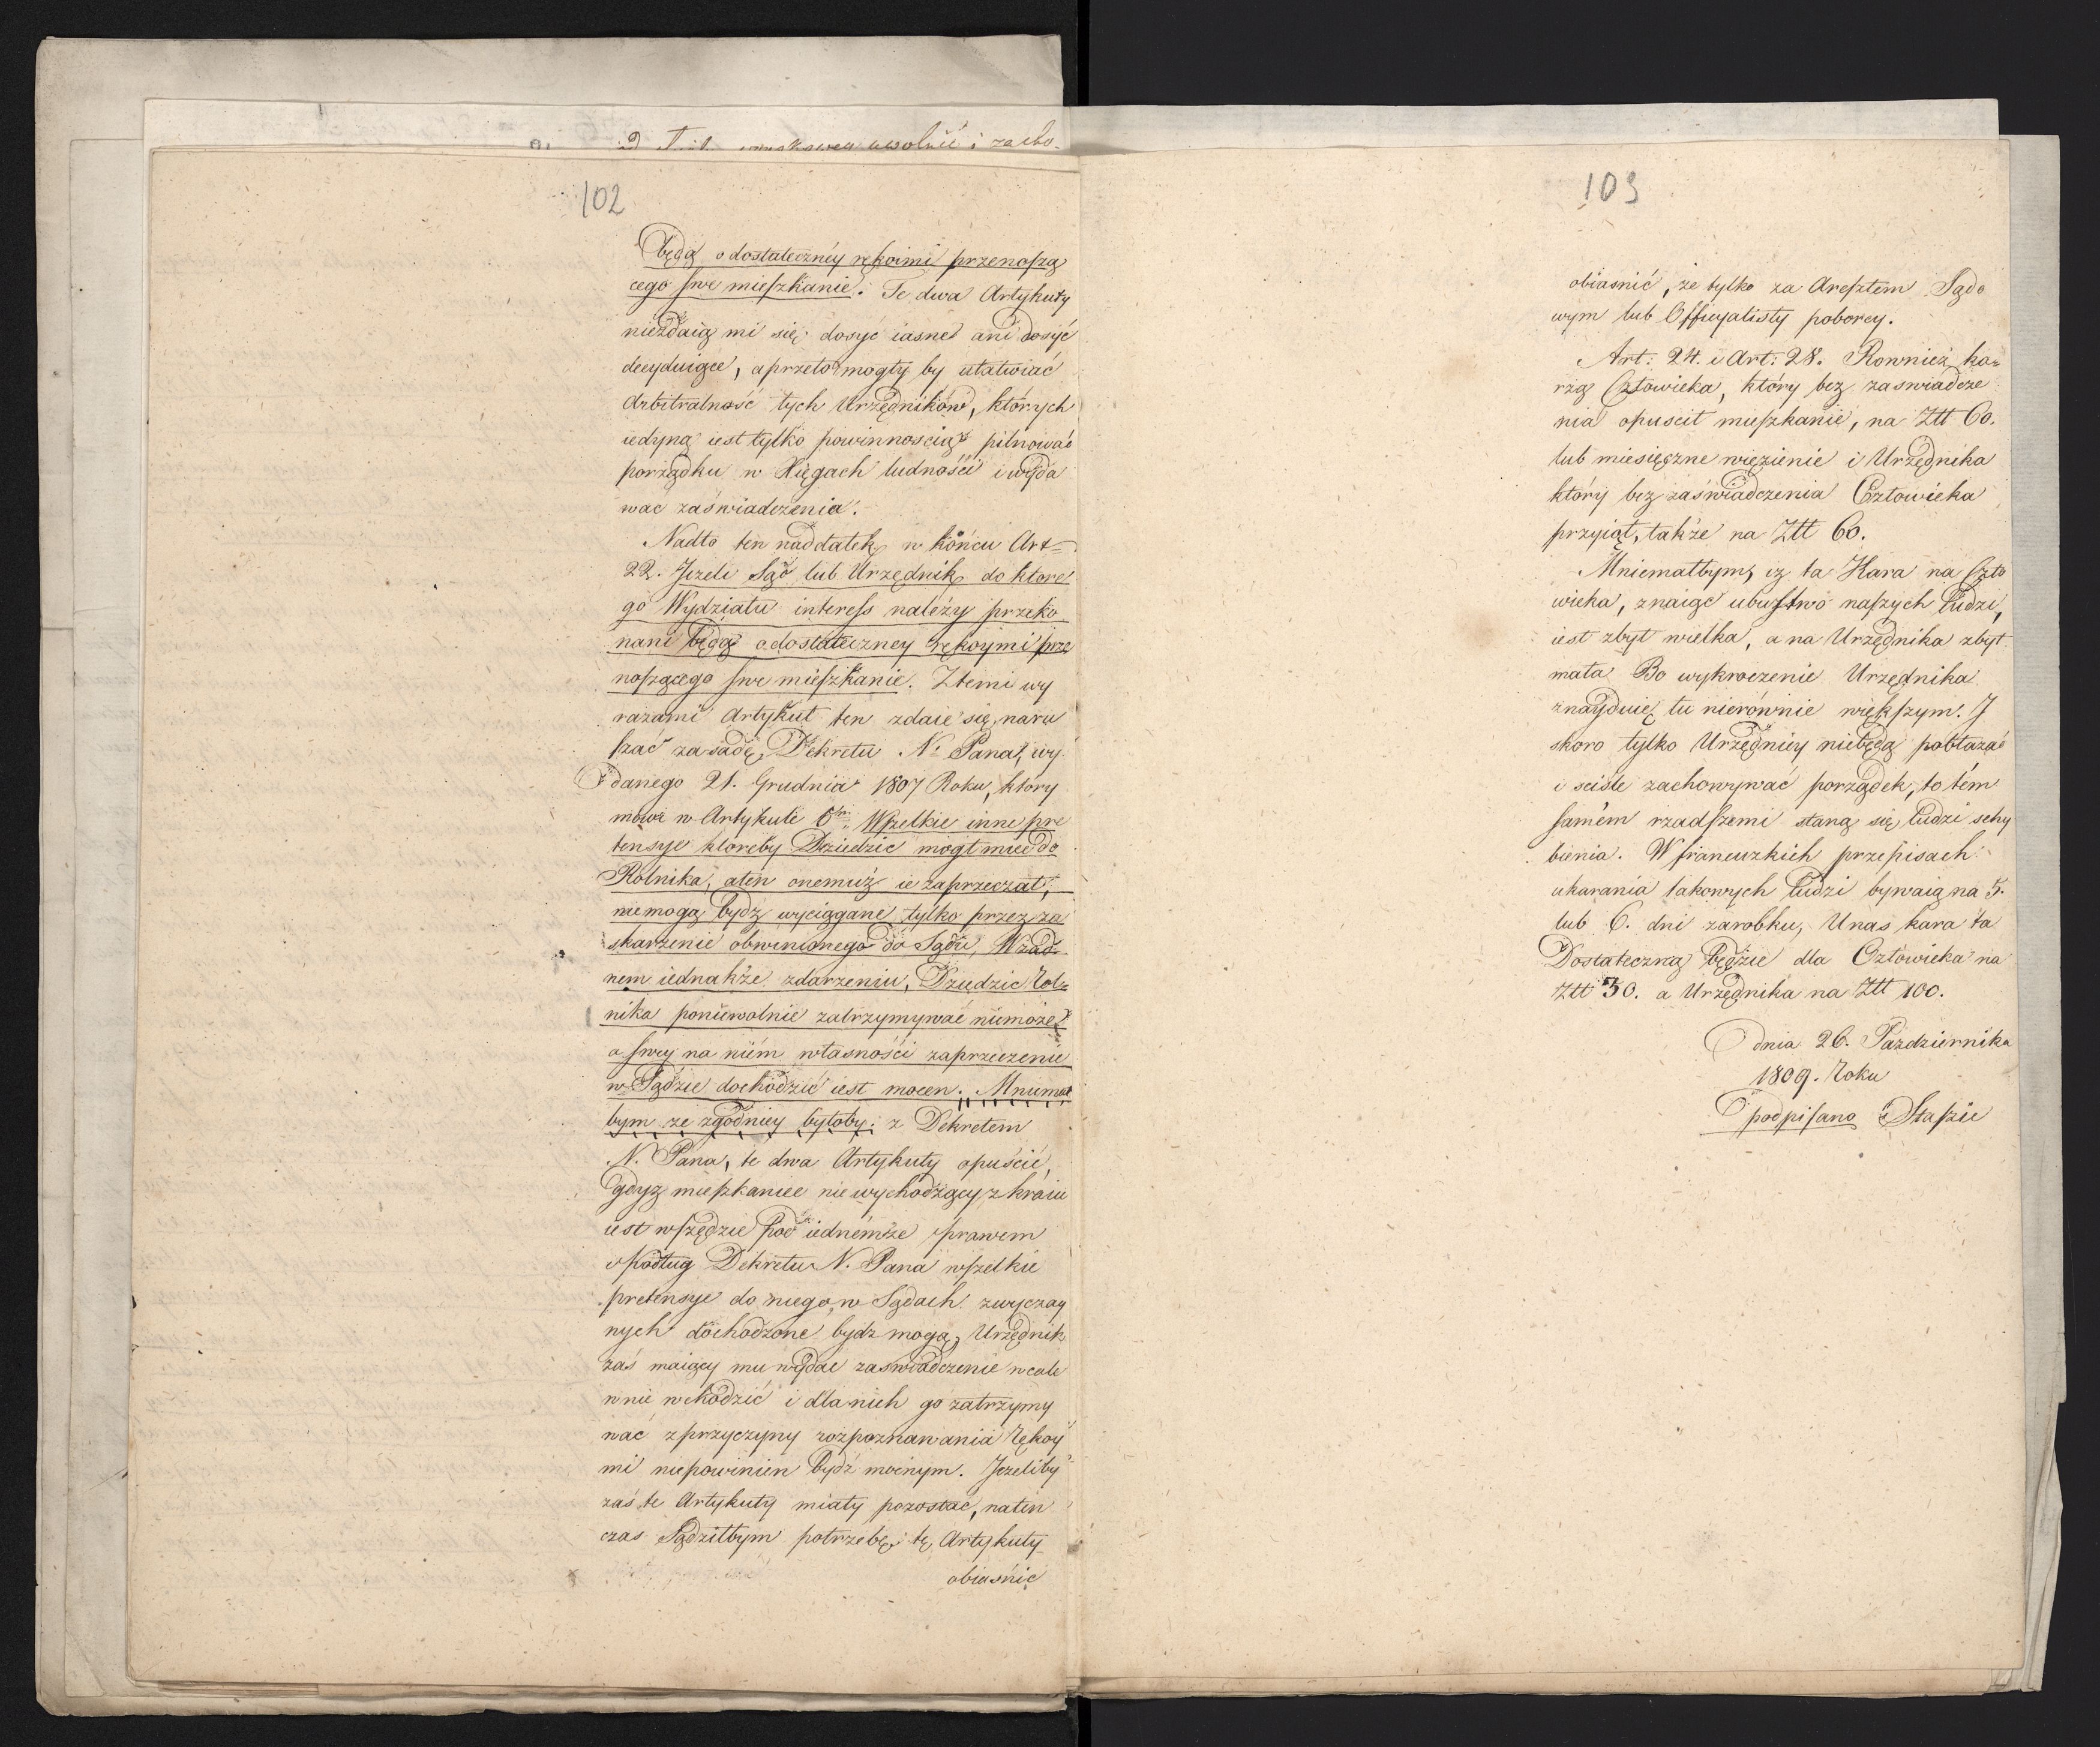 uwolnić i zacho-
102
będą o dostateczney rękoimi przenoszą
cego swe mieszkanie. Te dwa Artykuły
niezdaią mi się dosyć iasne ani dosyć
decyduiące, aprzeto mogły by ułatwiać
Arbitralność tych Urzędników, których
iedyną iest tylko powinnoscią pilnować
porządku w Xięgach ludności i wyda
wać zaświadczenia.
Nadto ten naddatek w końcu Art=
22. Jezeli Sąd lub Urzędnik do które
go Wydziału interess należy przeko
nani będą o dostateczney rękoymi prze
noszącego swe mieszkanie. Ztemi wy
razami Artykuł ten zdaie się naru
szać zasadę Dekretu N. Pana, wy
danego 21. Grudnia 1807 Roku, który
mówi w Artykule 5tm: Wszelkie inne pre
tensye któreby Dziedzic mógł mieć do
Rolnika, aten onemuż ie zaprzeczał,
niemogą bydź wyciągane tylko przez za
skarzenie obwinionego do Sądu, Wzad=
nem iednakże zdarzeniu, Dziedzic rol=
nika poniewolnie zatrzymywać niemoże
a swey na niém własności zaprzeczenie
w Sądzie dochodzić iest mocen. Mniemał
bym ze zgodniey byłoby: z Dekretem
N. Pana, te dwa Artykuły opuścić,
gdyż mieszkaniec nie wychodzący z kraiu
iest wszędzie pod iednémże prawem
podług Dekretu N. Pana wszelkie
pretensye do niego w Sądach zwyczay
nych dochodzone bydz mogą, Urzędnik
zaś maiący mu wydać zaświadczenie wcale
w nie wchodzić i dla nich go zatrzymy
wać z przyczyny rozpoznawania rękoy
mi niepowinien bydź mocnym. Jezeliby
zaś te Artykuły miały pozostać, naten
czas Sądziłbym potrzebę te Artykuły
obiaśnić
103
obiasnić, że tylko za Aresztem Sądo
wym lub Officyalisty poborcy.
Art: 24. i Art: 28. Rownież ka=
rzą Człowieka, który bez zaswiadcze
nia opuscił mieszkanie, na Złł 60.
lub miesięczne więzienie i Urzędnika
który bez zaświadczenia Człowieka
przyiął, także na Złł 60.
Mniemałbym, iz ta Kara na Czło
wieka, znaiąc ubustwo naszych ludzi,
iest zbyt wielka, a na Urzędnika zbyt
mała Bo wykroczenie Urzędnika
znayduię tu nierównie większym. J
skoro tylko Urzędnicy niebędą pobłażać
i sciśle zachowywać porządek, to tém
samém rzadszemi staną się ludzi uchy
bienia. W francuzkich przepisach
ukarania takowych ludzi bywaią na 5.
lub 6. dni zarobku, Unas kara ta
Dostateczną będzie dla Człowieka na
Złł 30. a Urzędnika na Złł 100.
dnia 26. Pazdziernika
1809. Roku
podpisano Staszic